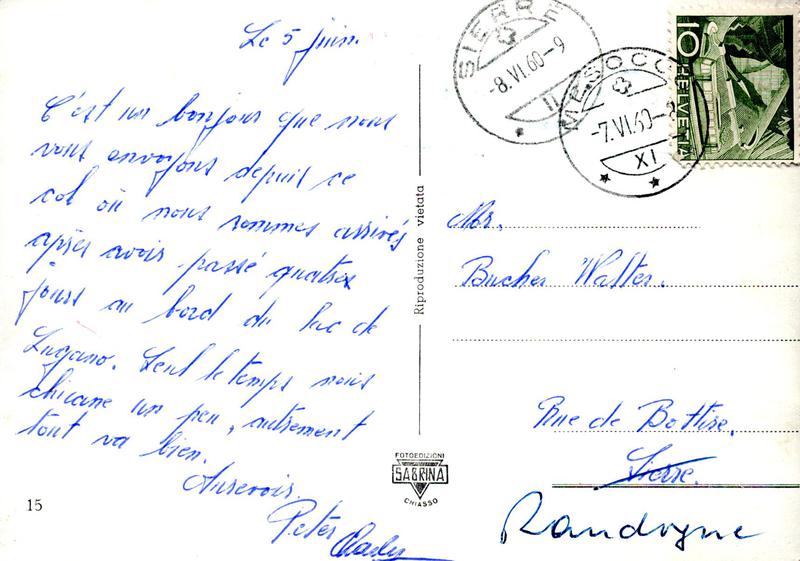 Le 5 juin.
C'est un bonjour que nous
vous envoyons depuis ce
col où nous sommes arrivés
après avois passé quatres
jours au bord du lac de
Lugano. Seul le temps nous
chicane un peu, autrement
tout va bien.
Aurevois.
Peter
15
Riproduzione vietata
FOTOEDIZIONI
SABRINA
CHIASSO
SIERRE
-8.VI.60-9
II
MESOCCO
-7.VI.60-
XI
10
HELVETIA
Mr.
Bucher Walter.
Rue de Bottire.
Sierre.
Randogne